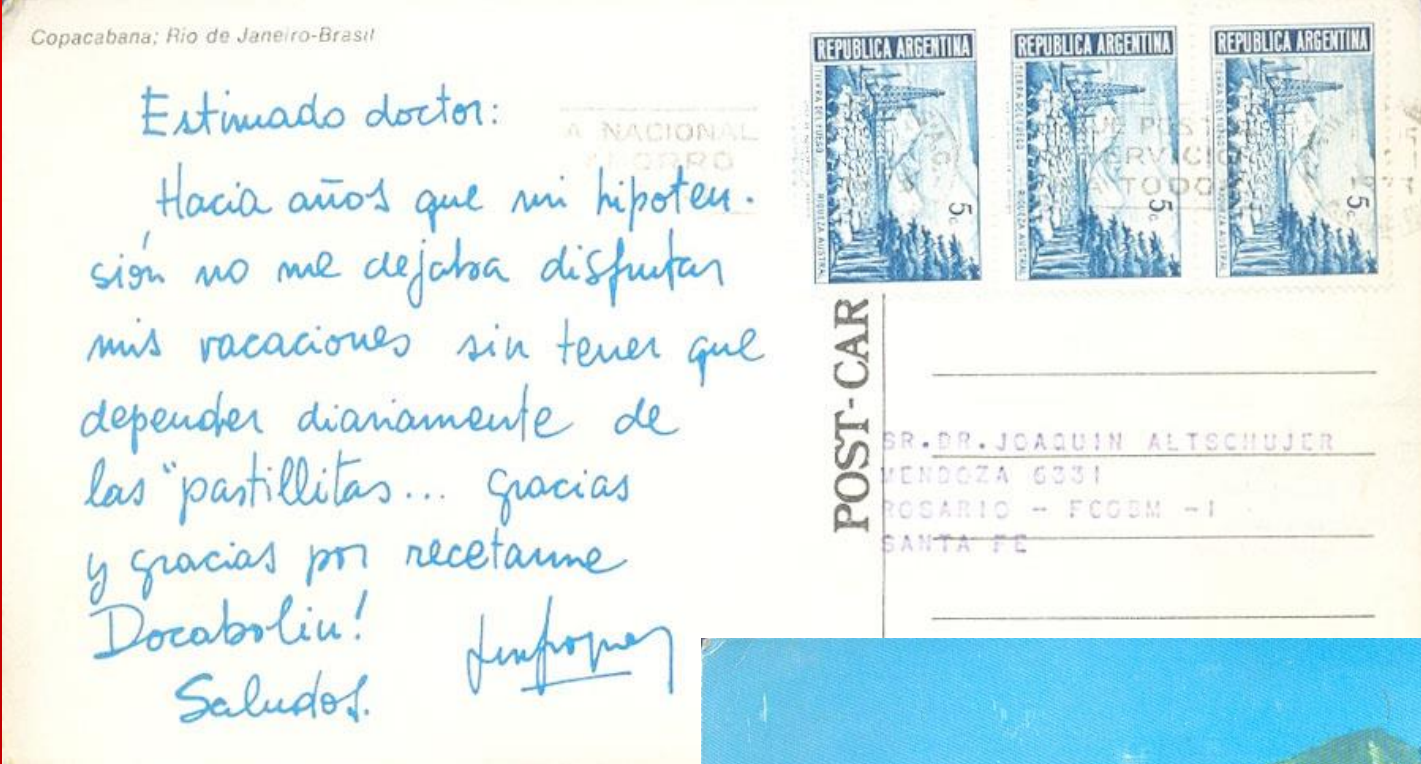 Copacabana; Rio de Janeiro-Brasil
Estimado doctor:
Hacia años que mi hipoten-
sión no me dejaba disfrutar
mis vacaciones sin tener que
depender diariamente de
las "pastillitas... gracias
y gracias por recetarme
Docabolin!
Saludos.
REPUBLICA ARGENTINA
TIERRA DEL FUEGO RIQUEZA AUSTRAL
5c
REPUBLICA ARGENTINA
TIERRA DEL FUEGO RIQUEZA AUSTRAL
5c
REPUBLICA ARGENTINA
TIERRA DEL FUEGO RIQUEZA AUSTRAL
5c
A NACIONAL
TODO
POST-CAR
SR.DR.JOAQUIN ALTSCHUJER
MENDOZA 6331
ROSARIO - FCGBM -1
SANTA FE